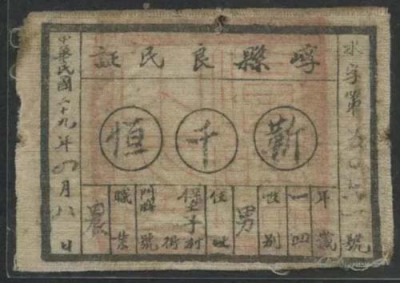 字第 號
崞縣良民証
靳千恒
年歲 一四
性別 男
住址 堡子村 街
門牌 號
職業 農
中華民國二十九年四月八日